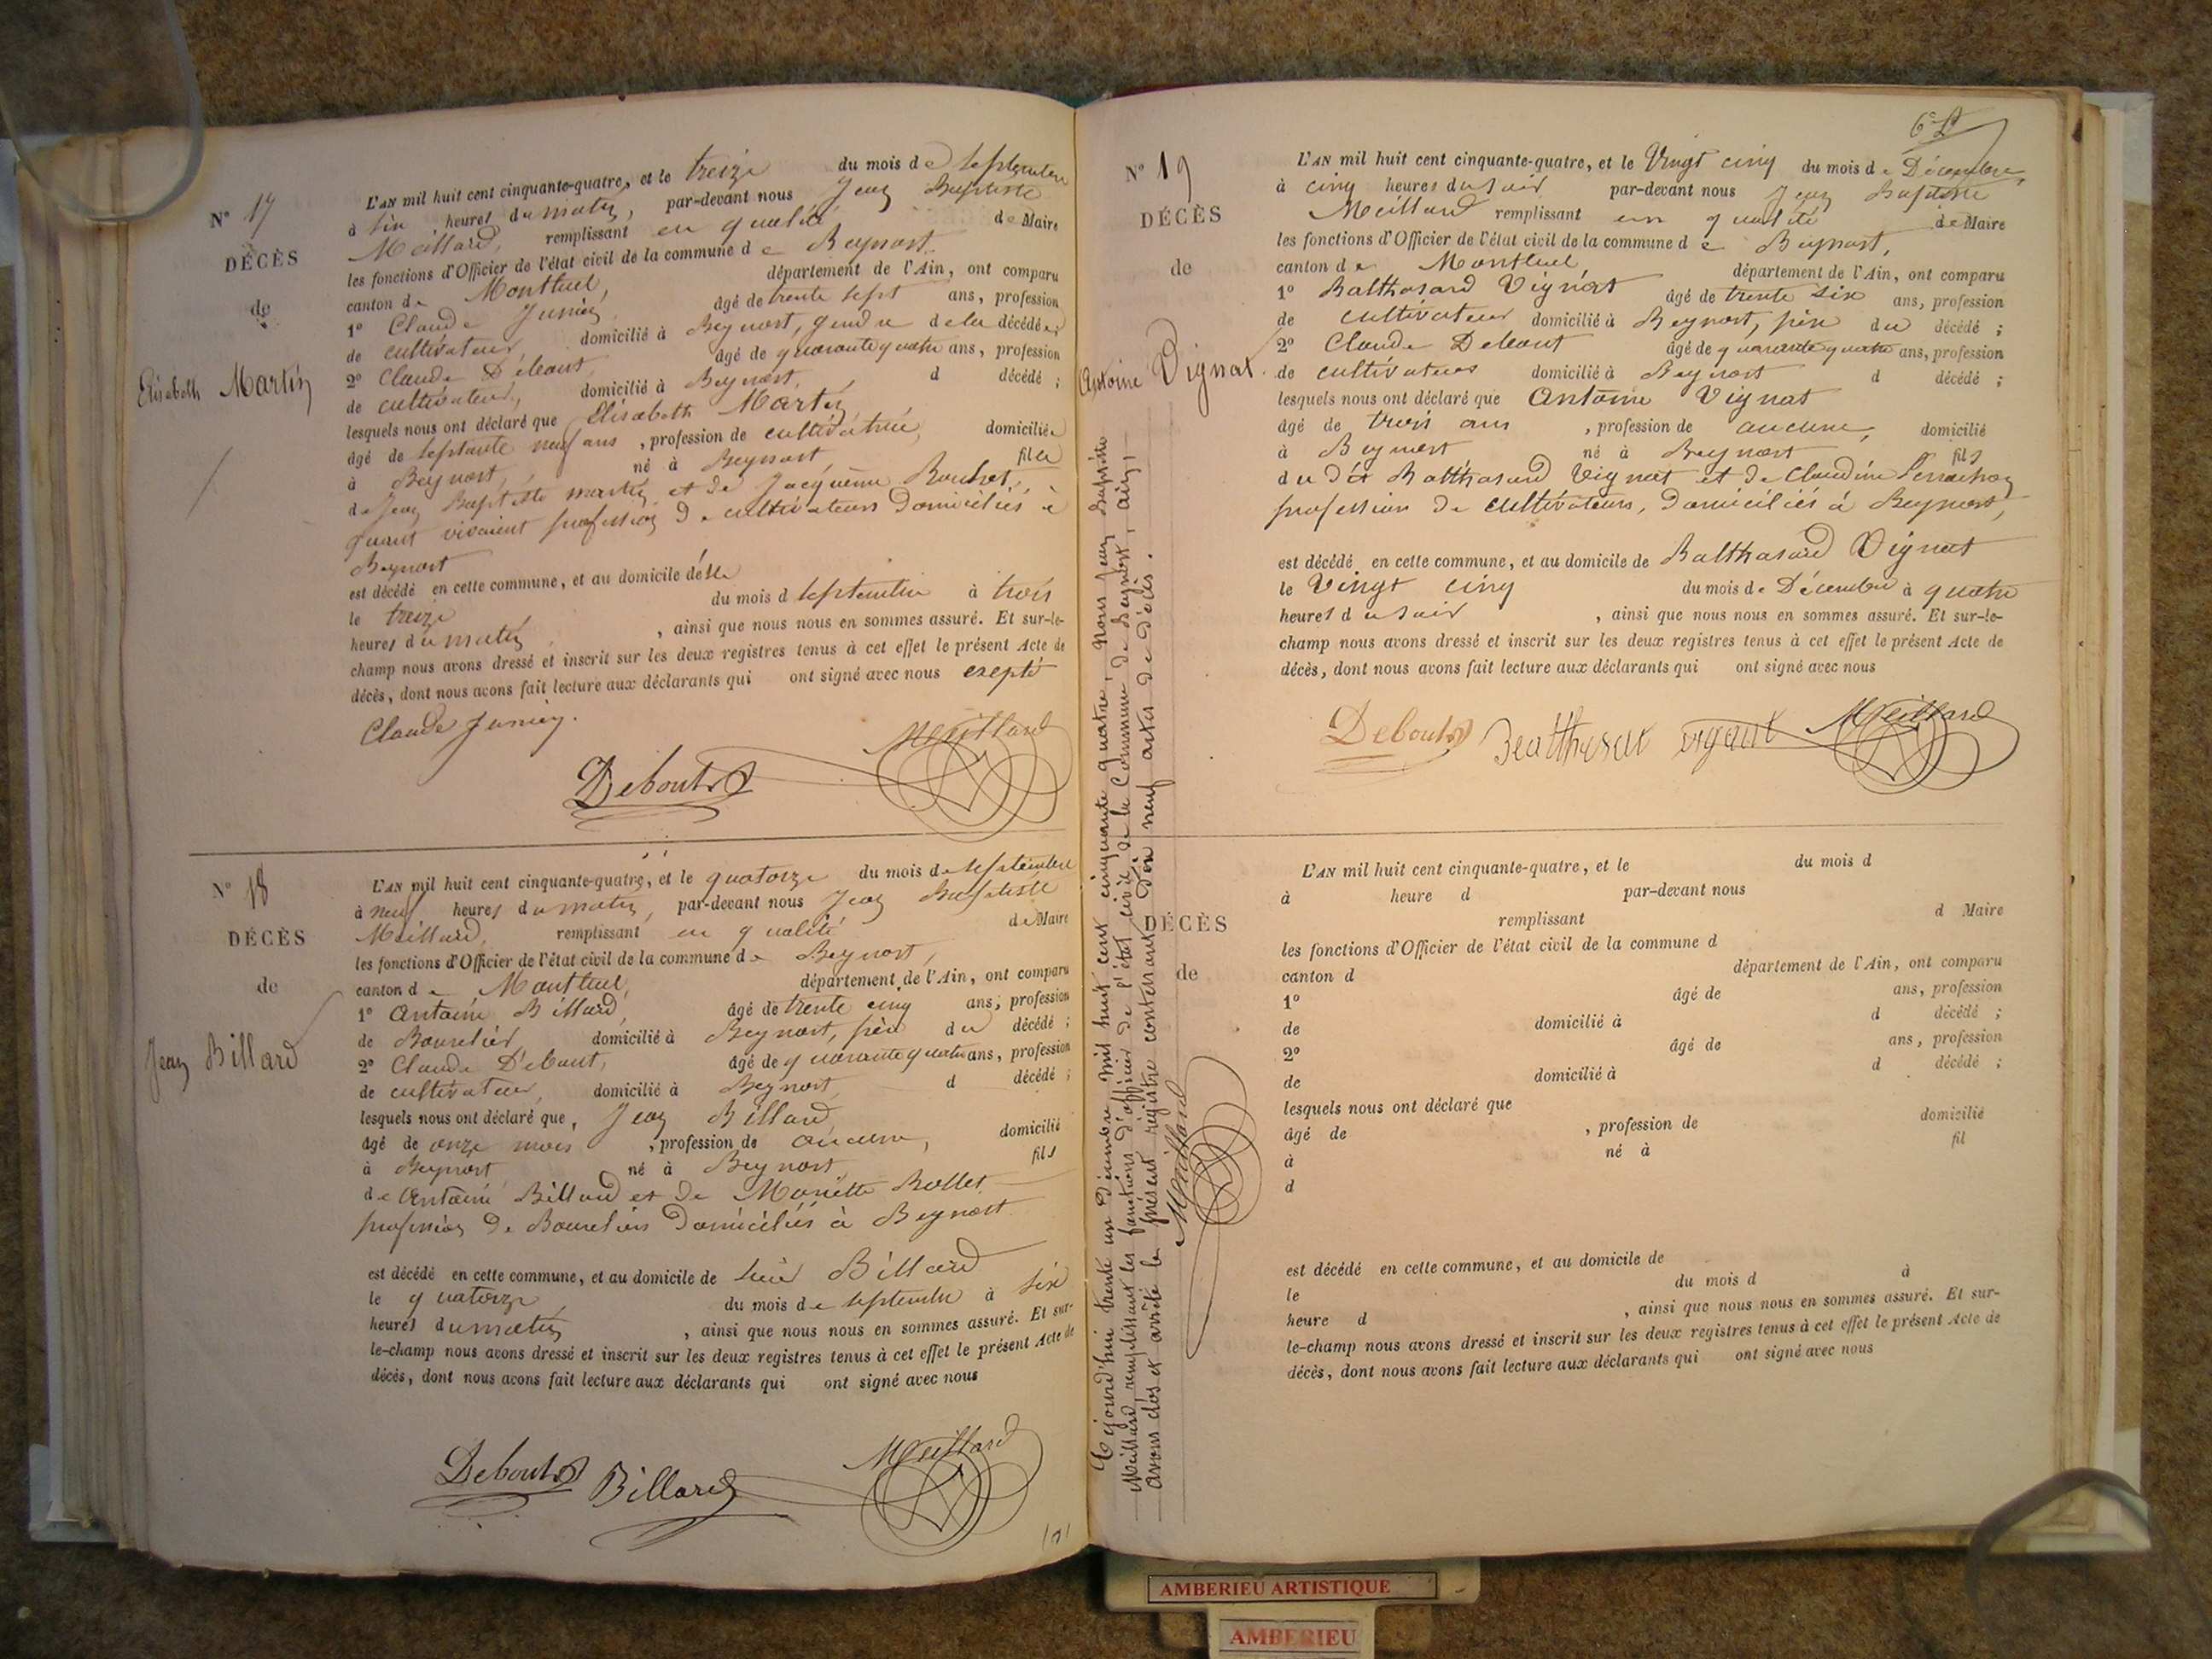 N° 17
DÉCÈS
de
Elisabeth Martin
L'AN mil huit cent cinquante-quatre, et le treize du mois de septembre
à six heures du matin, par-devant nous Jean Baptiste
Meillard, remplissant en qualité de Maire
les fonctions d'Officier de l'état civil de la commune de Beynost.
canton de Montluel, département de l'Ain, ont comparu
1° Claude âgé de trente sept ans, profession
de cultivateur, domicilié à Beynost, gendre de la décédée;
2° Claude Debout, âgé de quarante quatre ans, profession
de cultivateur, domicilié à Beynost, d décédé ;
lesquels nous ont déclaré que Elisabeth Martin
âgé de septante neuf ans, profession de cultivatrice, domiciliée
à Beynost, né à Beynost, fille
de Jean Baptiste martin et de Jacqueme
quant vivaient profession de cultivateurs domiciliés à
Beynost
est décédé en cette commune, et au domicile d'elle
le treize du mois d septembre à trois
heures du matin, ainsi que nous nous en sommes assuré. Et sur-le-
champ nous avons dressé et inscrit sur les deux registres tenus à cet effet le présent Acte de
décès, dont nous avons fait lecture aux déclarants qui ont signé avec nous exepté
Claude
Debout Meillard
N° 18
DÉCÈS
de
Jean Billard
L'AN mil huit cent cinquante-quatre, et le quatorze du mois de septembre
à neuf heures du matin, par-devant nous Jean Baptiste
Meillard, remplissant en qualité de Maire
les fonctions d'Officier de l'état civil de la commune de Beynost,
canton de Montluel, département de l'Ain, ont comparu
1° Antoine Billard, âgé de trente cinq ans, profession
de Bourelier, domicilié à Beynost, père du décédé ;
2° Claude Debout, âgé de quarante quatre ans, profession
de cultivateur, domicilié à Beynost, d décédé ;
lesquels nous ont déclaré que, Jean Billard
âgé de onze mois, profession de aucune, domicilié
à Beynost né à Beynost, fils
de Antoine Billard et de Mariette Rollet
profession de Boureliers domiciliés à Beynost
est décédé en cette commune, et au domicile de Billard
le quatorze du mois de septembre à six
heures du matin, ainsi que nous nous en sommes assuré. Et sur-
le-champ nous avons dressé et inscrit sur les deux registres tenus à cet effet le présent Acte de
décès, dont nous avons fait lecture aux déclarants qui ont signé avec nous
Debout Billard Meillard
N° 19
DÉCÈS
de
Antoine Vignat
L'AN mil huit cent cinquante-quatre, et le Vingt cinq du mois de Décembre,
à cinq heures du soir par-devant nous Jean Baptiste
Meillard remplissant en qualité de Maire
les fonctions d'Officier de l'état civil de la commune de Beynost,
canton de Montluel département de l'Ain, ont comparu
1° Balthasard Vignat âgé de trente six ans, profession
de cultivateur domicilié à Beynost, père du décédé ;
2° Claude Debout âgé de quarante quatre ans, profession
de cultivateur domicilié à Beynost d décédé ;
lesquels nous ont déclaré que Antoine Vignat
âgé de trois ans, profession de aucune, domicilié
à Beynost né à Beynost fils
du dit Balthasard Vignat et de Claudine Perrachon
profession de cultivateurs, domiciliés à Beynost,
est décédé en cette commune, et au domicile de Balthasard Vignat
le Vingt cinq du mois de Décembre à quatre
heures du soir, ainsi que nous nous en sommes assuré. Et sur-le-
champ nous avons dressé et inscrit sur les deux registres tenus à cet effet le présent Acte de
décès, dont nous avons fait lecture aux déclarants qui ont signé avec nous
Debout Vignat Meillard
Cejourd'hui trente un Décembre mil huit cent cinquante quatre, Nous Jean Baptiste
Meillard, remplissant les fonctions d'officier de l'état civil de la Commune de Beynost, ain,
avons clos et arrêté le présent registre contenant dix neuf actes de décès.
Meillard
DÉCÈS
de
L'AN mil huit cent cinquante-quatre, et le du mois d
à heure d par-devant nous
remplissant d Maire
les fonctions d'Officier de l'état civil de la commune d
canton d département de l'Ain, ont comparu
1° âgé de ans, profession
de domicilié à d décédé ;
2° âgé de ans, profession
de domicilié à d décédé ;
lesquels nous ont déclaré que
âgé de , profession de domicilié
à né à fil
d
est décédé en cette commune, et au domicile de
le du mois d à
heure d , ainsi que nous nous en sommes assuré. Et sur-
le-champ nous avons dressé et inscrit sur les deux registres tenus à cet effet le présent Acte de
décès, dont nous avons fait lecture aux déclarants qui ont signé avec nous
AMBERIEU ARTISTIQUE
AMBERIEU